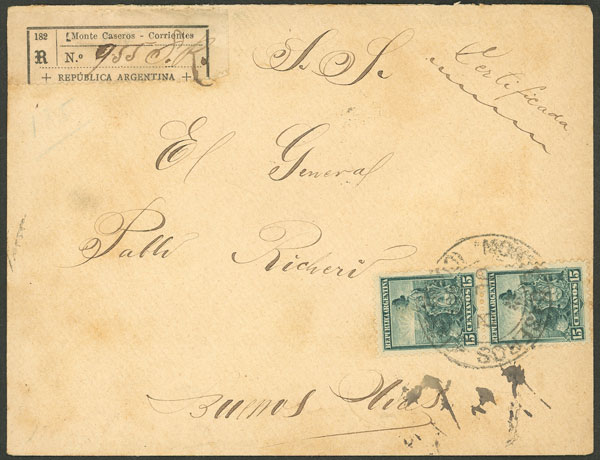 182 Monte Caseros - Corrientes
R N.º 955
+ REPÚBLICA ARGENTINA +
Certificada
S. S.
El General
Pablo Richeri
Buenos Aires
REPUBLICA ARGENTINA
15 CENTAVOS 15
REPUBLICA ARGENTINA
15 CENTAVOS 15